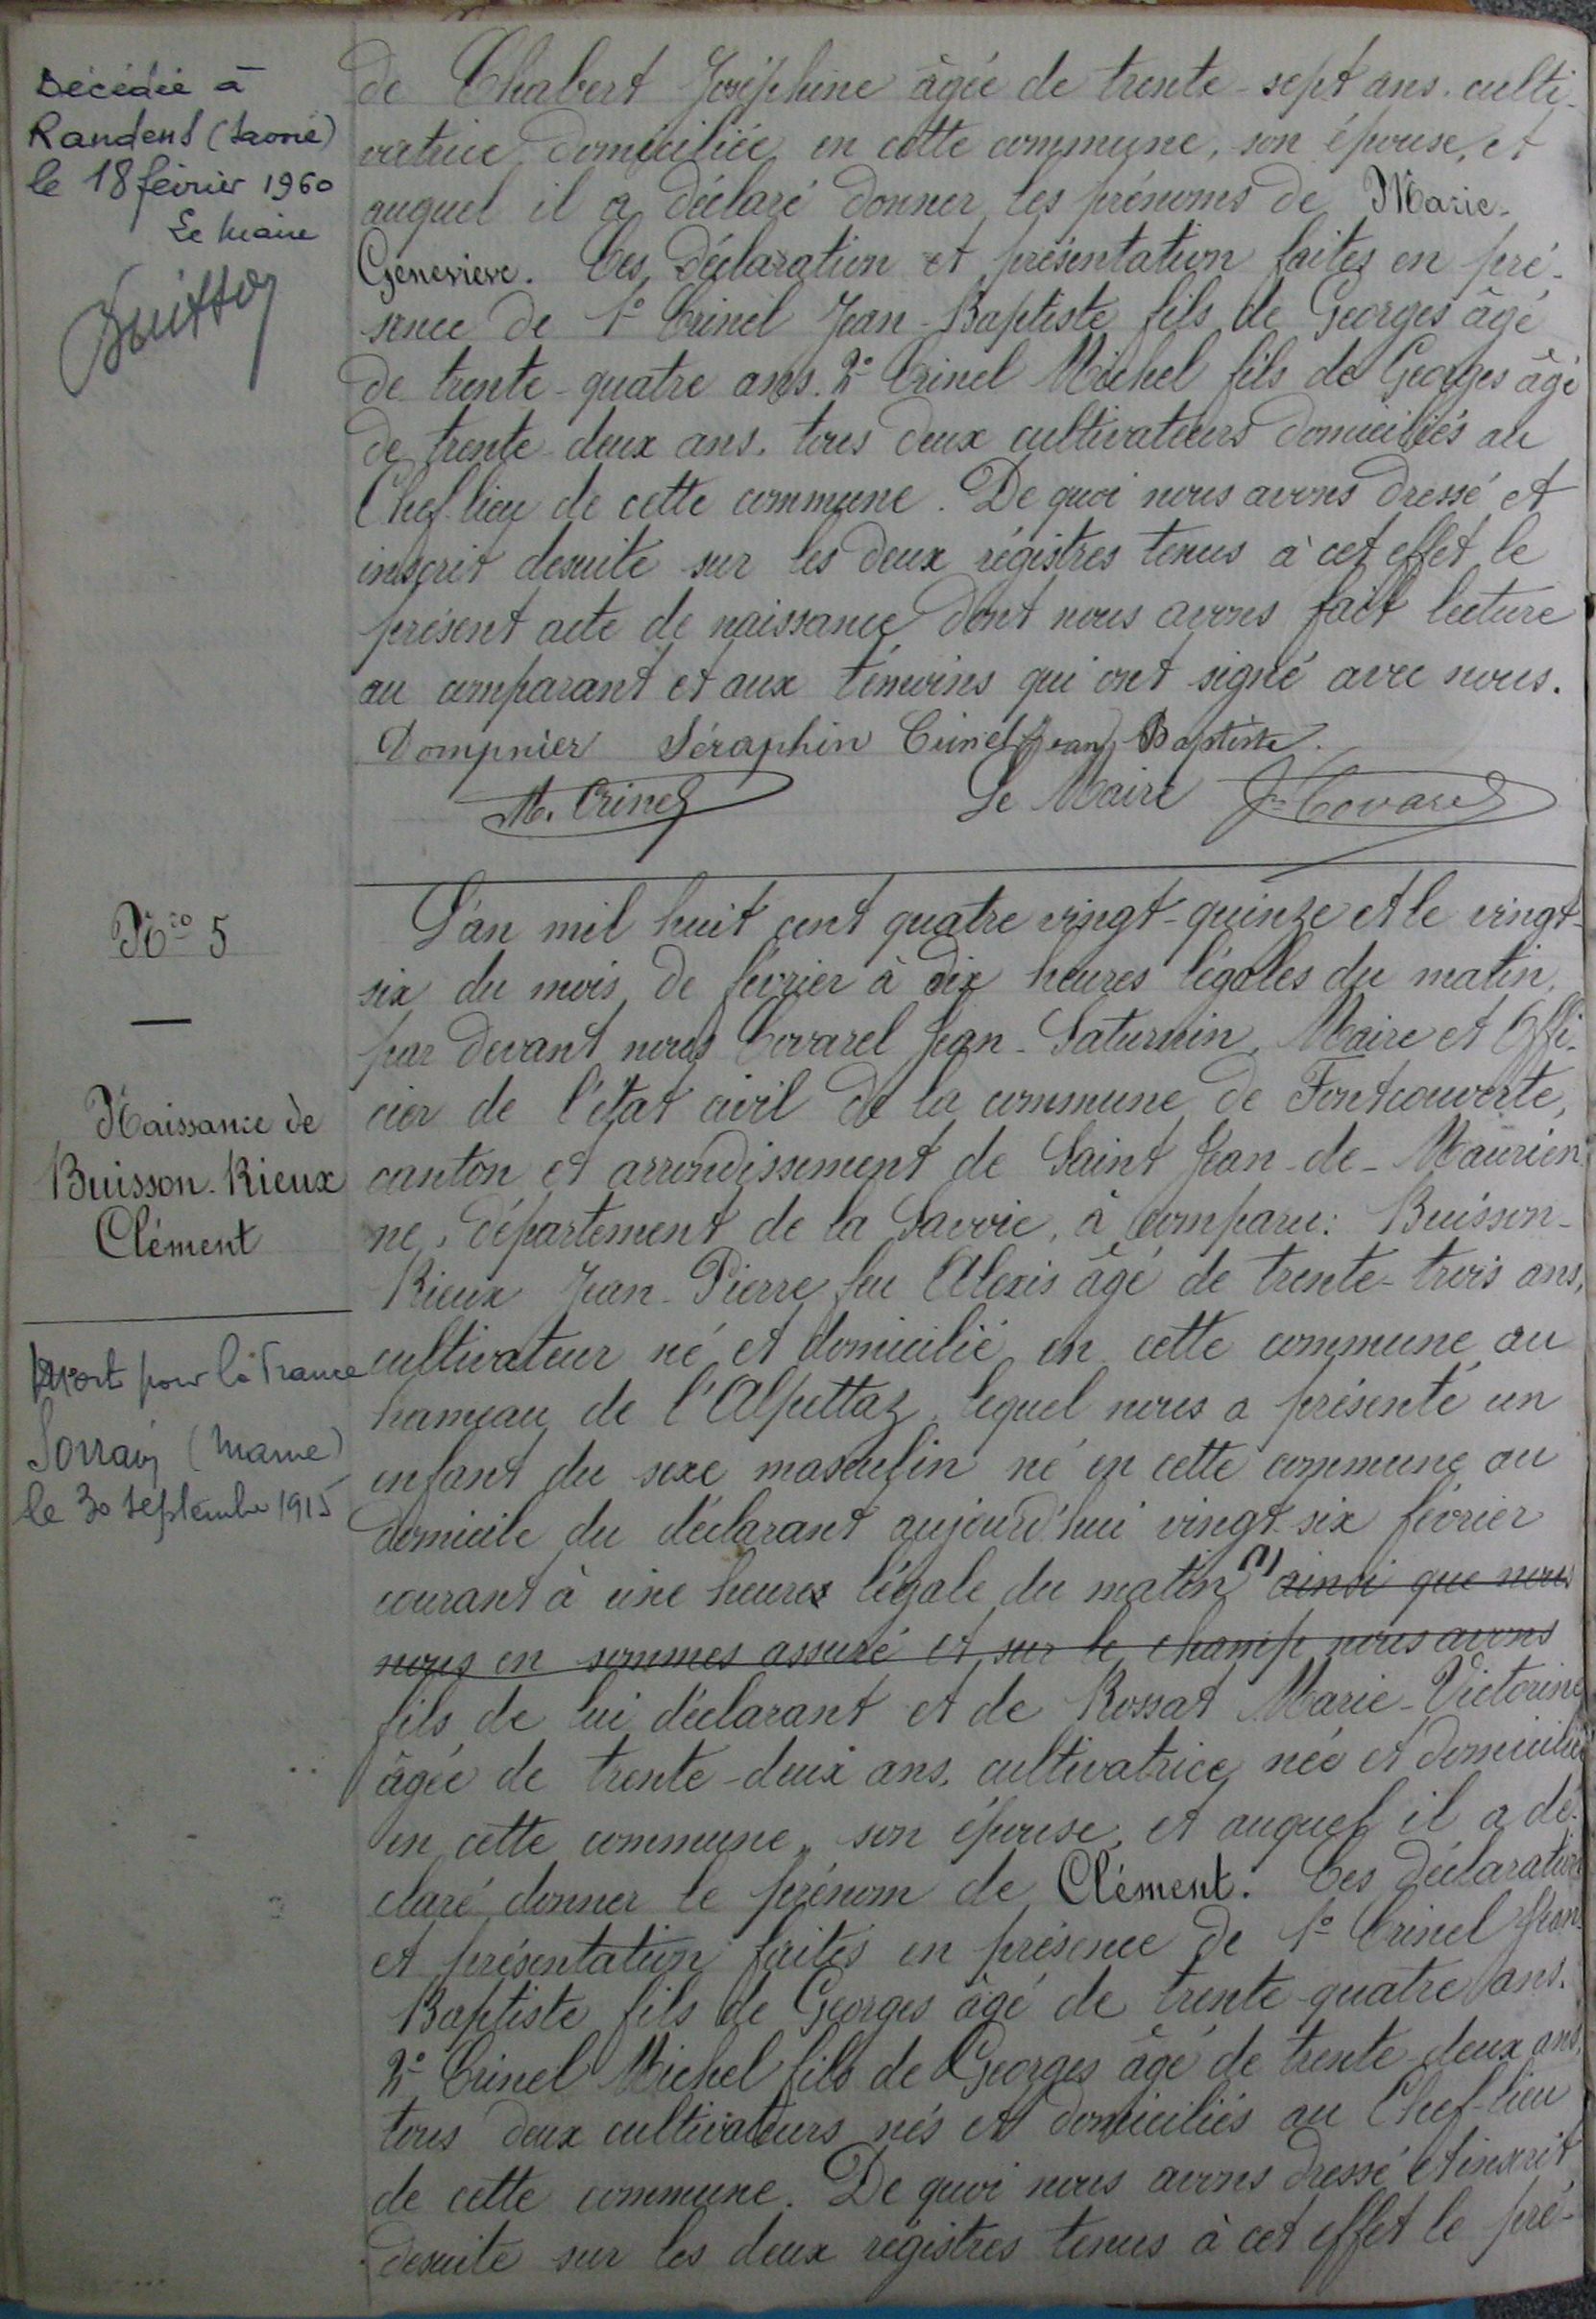 Décédée à
Randens (Savoie)
le 18 février 1960
Le Maire
de Chabert Joséphine âgée de trente-sept ans. culti-
vatrice domiciliée en cette commune, son épouse, et
auquel il a déclaré donner les prénoms de Marie-
Geneviève. Ces déclaration et présentation faites en pré-
sence de 1° Crinel Jean-Baptiste fils de Georges âgé
de trente-quatre ans. 2° Crinel Michel fils de Georges âgé
de trente-deux ans. tous deux cultivateurs domiciliés au
Chef-lieu de cette commune. De quoi nous avons dressé et
inscrit desuite sur les deux régistres tenus à cet effet le
présent acte de naissance dont nous avons fait lecture
au comparant et aux témoins qui ont signé avec nous.
Dompnier Séraphin Crinel Jean Baptiste.
M. Crinel Le Maire J. Covarel
N° 5
Naissance de
Buisson-Rieux
Clément
Mort pour la France
(Marne)
le 30 septembre 1915
L'an mil huit cent quatre vingt-quinze et le vingt-
six du mois de février à dix heures légales du matin,
par devant nous Covarel Jean-Saturnin, Maire et Offi-
cier de l'état civil de la commune de Fontcouverte,
canton et arrondissement de Saint Jean-de-Maurien-
ne, département de la Savoie, à comparu: Buisson-
Rieux Jean-Pierre feu Alexis âgé de trente-trois ans,
cultivateur né et domicilié en cette commune au
hameau de l'Alpettaz, lequel nous a présenté un
enfant du sexe masculin né en cette commune au
domicile du déclarant aujourd'hui vingt-six février
courant à une heures légale du matin (1) ainsi que nous
nous en sommes assuré et sur le champ nous avons
fils de lui déclarant et de Rossat Marie-Victorine
âgée de trente-deux ans, cultivatrice née et domiciliée
en cette commune, son épouse, et auquel il a dé-
claré donner le prénom de Clément. Ces déclaration
et présentation faites en présence de 1° Crinel Jean-
Baptiste fils de Georges âgé de trente-quatre ans.
2° Crinel Michel fils de Georges âgé de trente-deux ans,
tous deux cultivateurs nés et domiciliés au Chef-lieu
de cette commune. De quoi nous avons dressé et inscrit
desuite sur les deux régistres tenus à cet effet le pré-